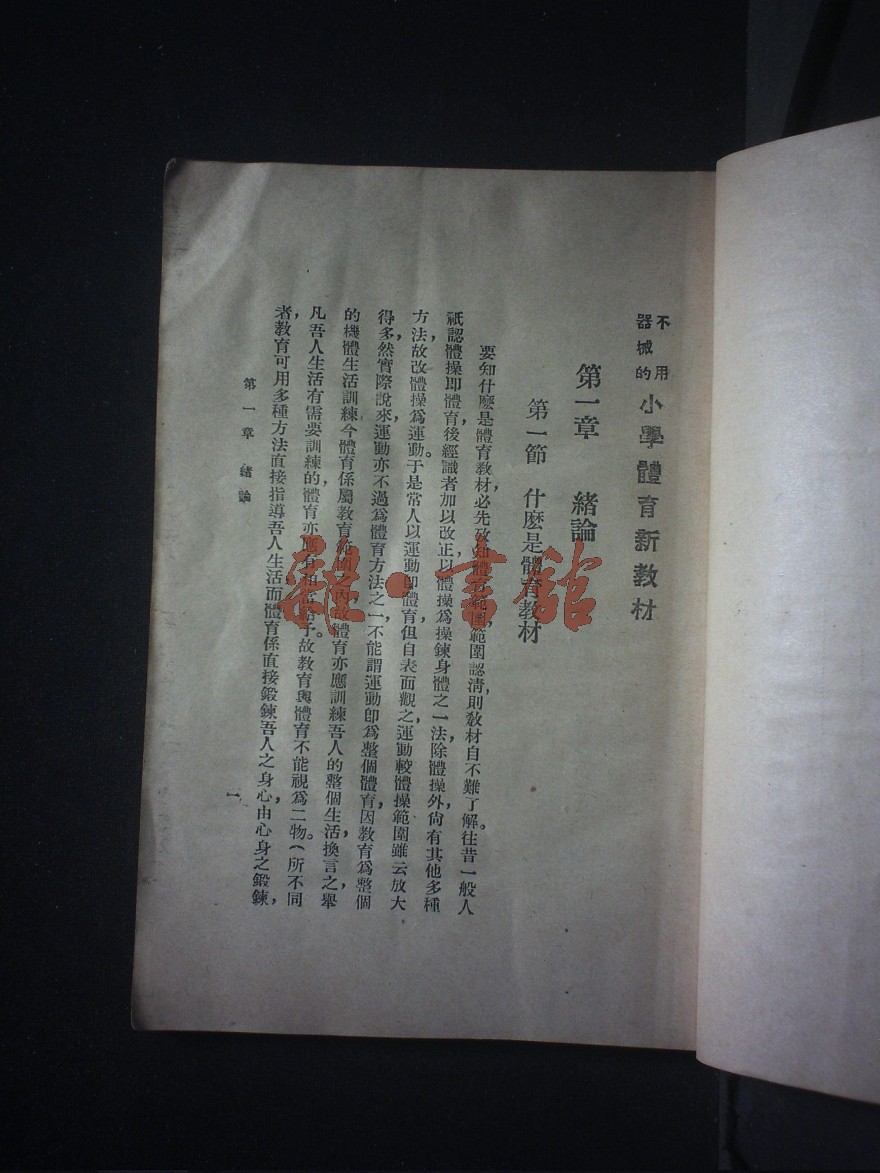 不用器械的 小學體育新教材
第一章 緒論
第一節 什麽是體育教材
要知什麽是體育教材，必先攷知體育範圍，範圍認淸，則教材自不難了解。往昔一般人
祇認體操卽體育，後經識者加以改正，以體操爲操鍊身體之一法，除體操外，尙有其他多種
方法，故改體操爲運動。于是常人以運動卽體育，但自表面觀之，運動較體操範圍雖云放大
得多，然實際說來，運動亦不過爲體育方法之一，不能謂運動卽爲整個體育，因教育爲整個
的機體生活訓練，今體育係屬教育範圍之內，故體育亦應訓練吾人的整個生活，換言之，舉
凡吾人生活有需要訓練的，體育亦應有相當給予。故教育與體育不能視爲二物。（所不同
者，教育可用多種方法直接指導吾人生活，而體育係直接鍛鍊吾人之身心，由心身之鍛鍊，
第一章 緒論
一
龍·書館